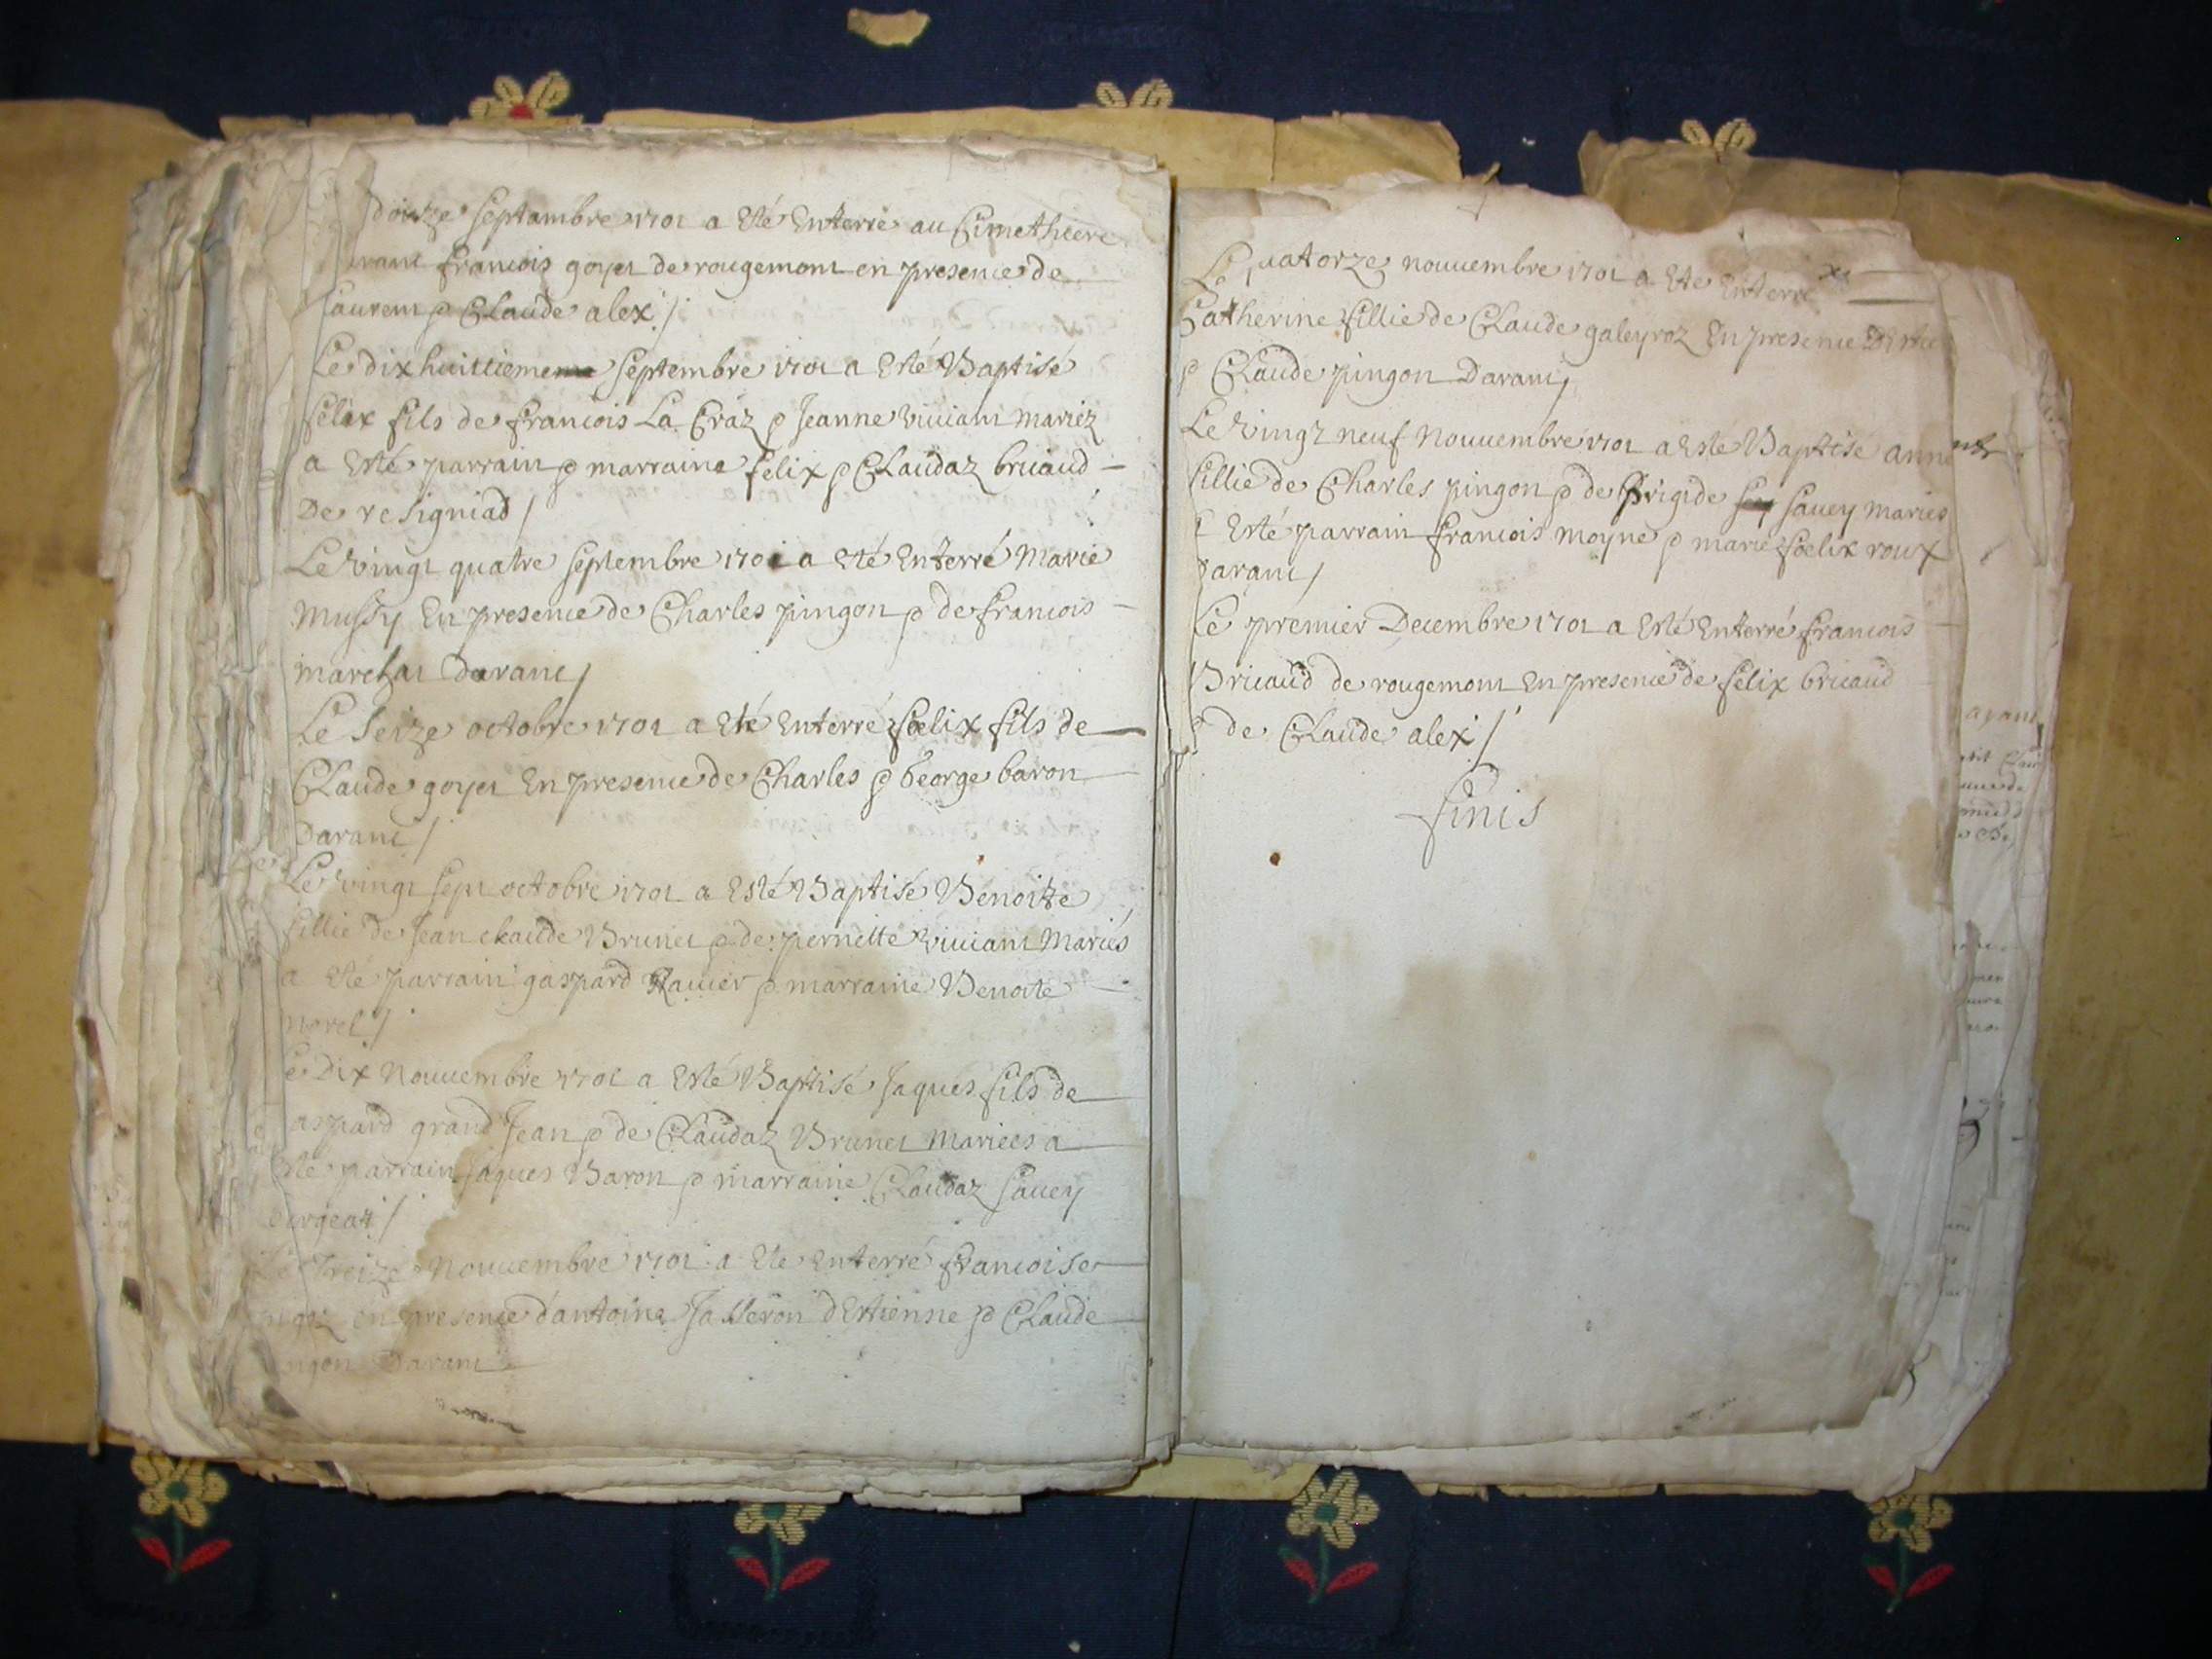 douze septambre 1701 a Esté Enterré au Cimethiere
francois goyet de rougemont en presence de
Laurent & Claude alex /
Le dixhuittieme septembre 1701 a Esté Baptisé
felix fils de francois La Craz & Jeanne viviant mariez
a Esté parrain & marraine felix & Claudaz bruaud
De resigniad /
Le vingt quatre septembre 1701 a Eté Enterré Marie
Mussy En presence de Charles pingon & de francois
marchat Darant /
Le Seize octobre 1701 a Eté Enterré foelix fils de
Claude goyet En presence de Charles & George baron
Darant /
Le vingt sept octobre 1701 a Esté Baptisé Benoitte
fillie de Jean claude Brunet & de pernette viviant Mariés
a Eté parrain gaspard Ravier & marraine Benoite
morel /
Le Dix Nouvembre 1701 a Esté Baptisé Jaques fils de
gaspard grand Jean & de Claudaz Brunet Mariees a
Esté parrain Jaques Baron & marraine Claudaz Savey
Le Treize Nouvembre 1701 a Ete enterré francoise
en presence d'antoine Jasseron d'Estienne & Claude
pingon Darant
Le quatorze nouvembre 1701 a Ete Enterré
Catherine fillie de Claude galeyroz En presence
& Claude pingon Darant /
Le vingt neuf Nouvembre 1701 a Esté Baptise anne
fillie de Charles pingon & de Brigide Savey mariés
a Esté parrain francois moyne & marie foelix roux
Darant /
Le premier Decembre 1701 a Esté Enterré francois
Bruaud de rougemont En presence de felix bruaud
& de Claude alex /
finis